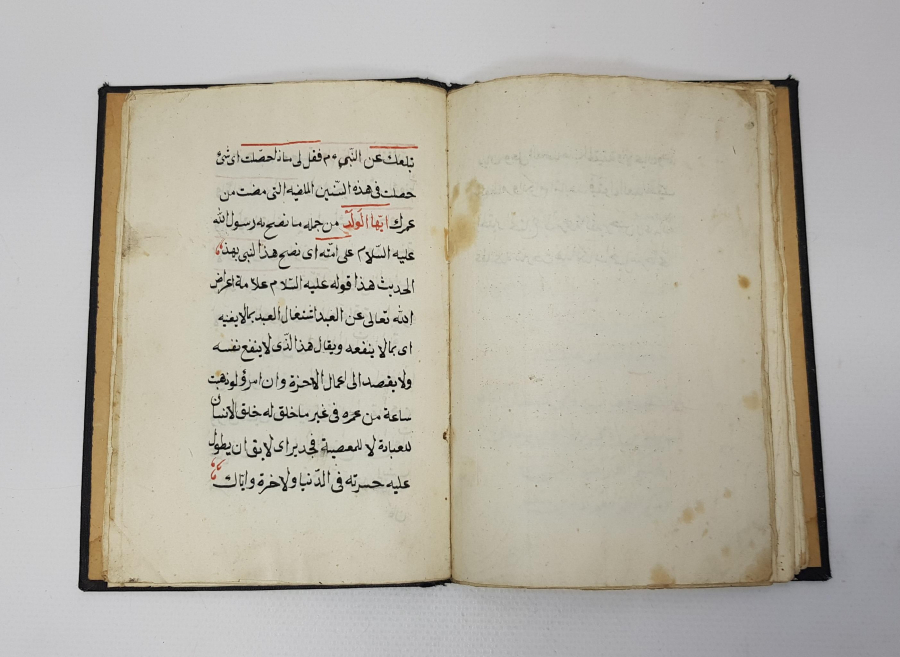 تبلغك عن النبي م فقل لى ماذا حصلت اى شئ
حصلت فى هذه السنين الماضيه التى مضت من
عمرك ايها الولد من جمله ما نصح به رسول الله
عليه السلام على امته اى نصح هذا لنبى بهذ
الحديث هذا قوله عليه السلام علامة اعراض
الله تعالى عن العبد اشتغال العبد بمالا يعنيه
اى بمالا ينفعه ويقال هذا الذى لا ينفع نفسه
ولا يقصد الى اعمال الاخرة وان امرؤ لو ذهبت
ساعة من عمره فى غير ما خلق له خلق الانسان
للعبادة لا للمعصية فجدير اى لايق ان يطول
عليه حسرته فى الدنيا ولاخرة واياك